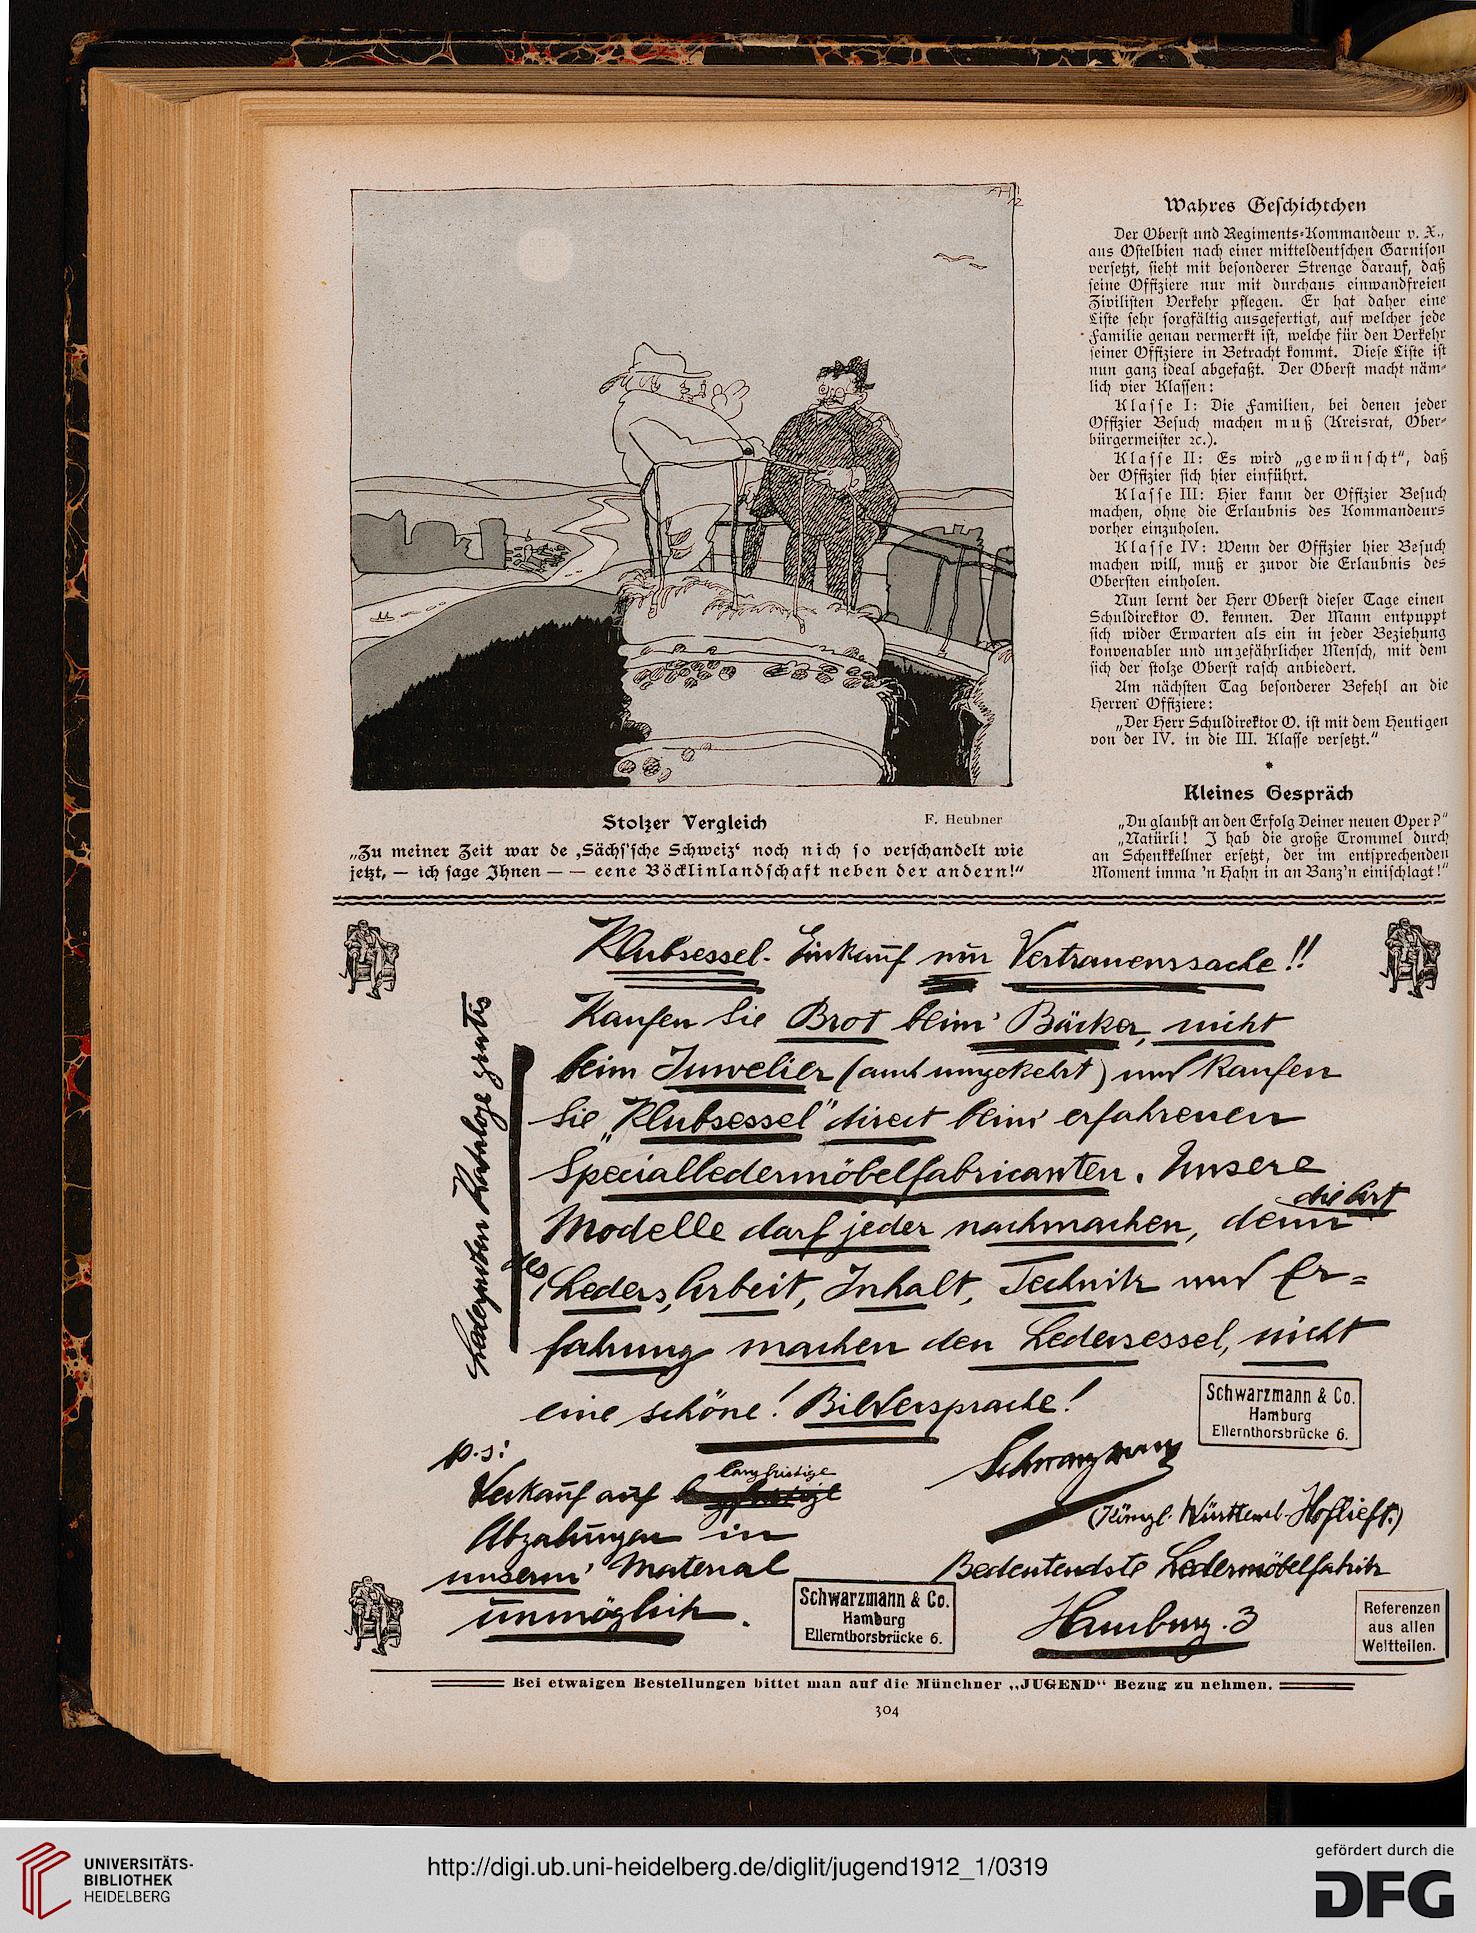 Stolzer Vergleich
F. Heubner
„Zu meiner Zeit war de ‚Sächs'sche Schweiz‘ noch nich so verschandelt wie
jetzt, — ich sage Ihnen — — eene Böcklinlandschaft neben der andern!“
Wahres Geschichtchen
Der Oberst und Regiments-Kommandeur v. X.,
aus Ostelbien nach einer mitteldeutschen Garnison
versetzt, sieht mit besonderer Strenge darauf, daß
seine Offiziere nur mit durchaus einwandfreien
Zivilisten Verkehr pflegen. Er hat daher eine
Liste sehr sorgfältig ausgefertigt, auf welcher jede
Familie genau vermerkt ist, welche für den Verkehr
seiner Offiziere in Betracht kommt. Diese Liste ist
nun ganz ideal abgefaßt. Der Oberst macht näm-
lich vier Klassen:
Klasse I: Die Familien, bei denen jeder
Offizier Besuch machen muß (Kreisrat, Ober-
bürgermeister ꝛc.).
Klasse II: Es wird „gewünscht“, daß
der Offizier sich hier einführt.
Klasse III: Hier kann der Offizier Besuch
machen, ohne die Erlaubnis des Kommandeurs
vorher einzuholen.
Klasse IV: Wenn der Offizier hier Besuch
machen will, muß er zuvor die Erlaubnis des
Obersten einholen.
Nun lernt der Herr Oberst dieser Tage einen
Schuldirektor O. kennen. Der Mann entpuppt
sich wider Erwarten als ein in jeder Beziehung
konvenabler und ungefährlicher Mensch, mit dem
sich der stolze Oberst rasch anbiedert.
Am nächsten Tag besonderer Befehl an die
Herren Offiziere:
„Der Herr Schuldirektor O. ist mit dem Heutigen
von der IV. in die III. Klasse versetzt.“
*
Kleines Gespräch
„Du glaubst an den Erfolg Deiner neuen Oper?“
„Natürli! I hab die große Trommel durch
an Schenkkellner ersetzt, der im entsprechenden
Moment imma 'n Hahn in an Banz'n einischlagt!“
Klubsessel-Einkauf nur Vertrauenssache!!
Kaufen Sie Brot beim Bäcker, nicht
beim Juwelier (auch umgekehrt) und kaufen
Sie „Klubsessel“ direct beim erfahrenen
Specialledermöbelfabricanten. Unsere
Modelle darf jeder nachmachen, denn die Art
des Leders, Arbeit, Inhalt, Technik und Er=
fahrung machen den Ledersessel, nicht
eine schöne! Bildersprache!
Ledersproben Kataloge gratis
Schwarzmann & Co.
Hamburg
Ellernthorsbrücke 6.
p.s:
Verkauf auf langfristige
Abzahlungen in
unserm Material
unmöglich.
Schwarzmann & Co.
Hamburg
Ellernthorsbrücke 6.
Schwarzmann
(Königl. Württemb. Hoflieft.)
Bedeutendste Ledermöbelfabrik
Hamburg. 3
Referenzen
aus allen
Weltteilen.
Bei etwaigen Bestellungen bittet man auf die Münchner „JUGEND“ Bezug zu nehmen.
304
UNIVERSITÄTS-
BIBLIOTHEK
HEIDELBERG
http://digi.ub.uni-heidelberg.de/diglit/jugend1912_1/0319
gefördert durch die
DFG